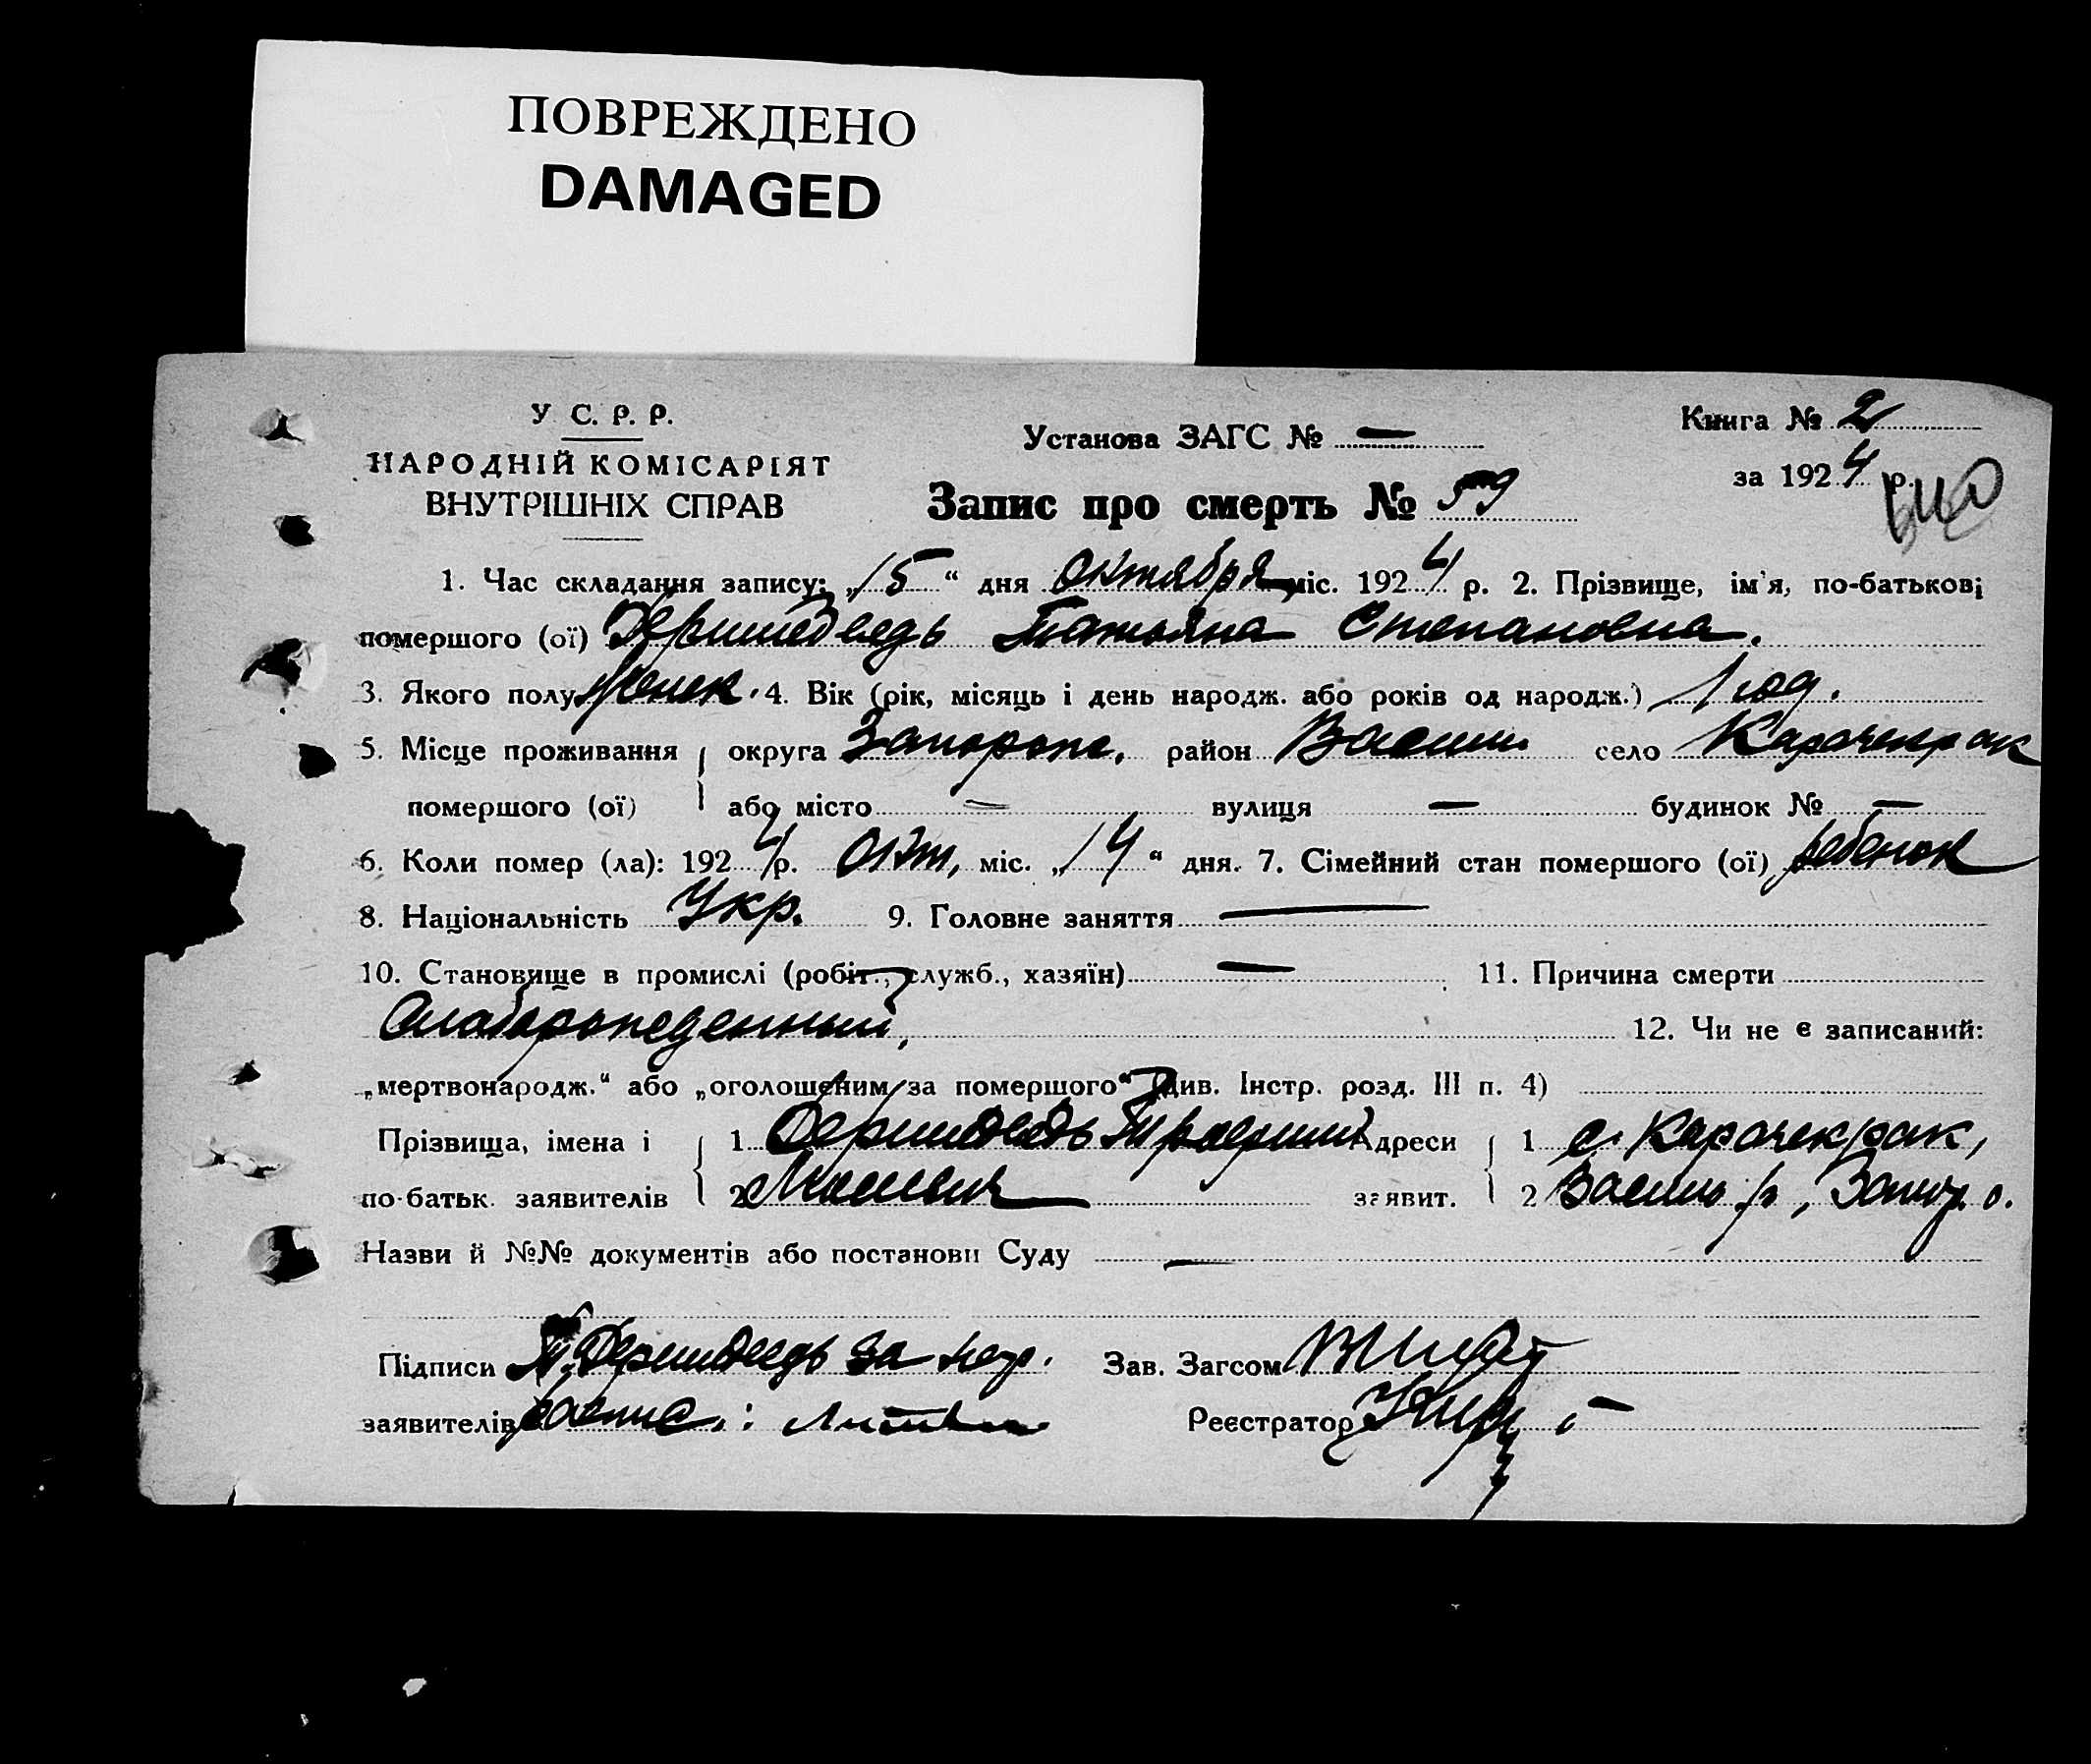 ПОВРЕЖДЕНО
DAMAGED
У С. Р. Р.
НАРОДНІЙ КОМІСАРІЯТ
ВНУТРІШНІХ СПРАВ
Установа ЗАГС № —
Книга № 2
за 1924 р.
Запис про смерть № 59
1. Час складання запису: „15“ дня октября міс. 1924 р. 2. Прізвище, ім'я, по-батькові
помершого (ої) Дермедведь Татьяна Степановна.
3. Якого полу женск. 4. Вік (рік, місяць і день народж. або років од народж.) 1 год.
5. Місце проживання округа Запорож. район Васил. село Карачекрак
помершого (ої) або місто — вулиця — будинок № —
6. Коли помер (ла): 1924 р. окт. міс. „14“ дня. 7. Сімейний стан помершого (ої) ребенок
8. Національність Укр. 9. Головне заняття —
10. Становище в промислі (робіт., служб., хазяїн) — 11. Причина смерти
Слаборожденный, 12. Чи не є записаний:
„мертвонародж.“ або „оголошеним за помершого“ (див. Інстр. розд. III п. 4)
Прізвища, імена і 1 Дермедведь Адреси 1 с. Карачекрак,
по-батьк. заявителів 2 заявит. 2 Васил. р, Запор. о.
Назви й №№ документів або постанови Суду —
Підписи Дермедведь за негр. Зав. Загсом
заявителів распис.: Реєстратор